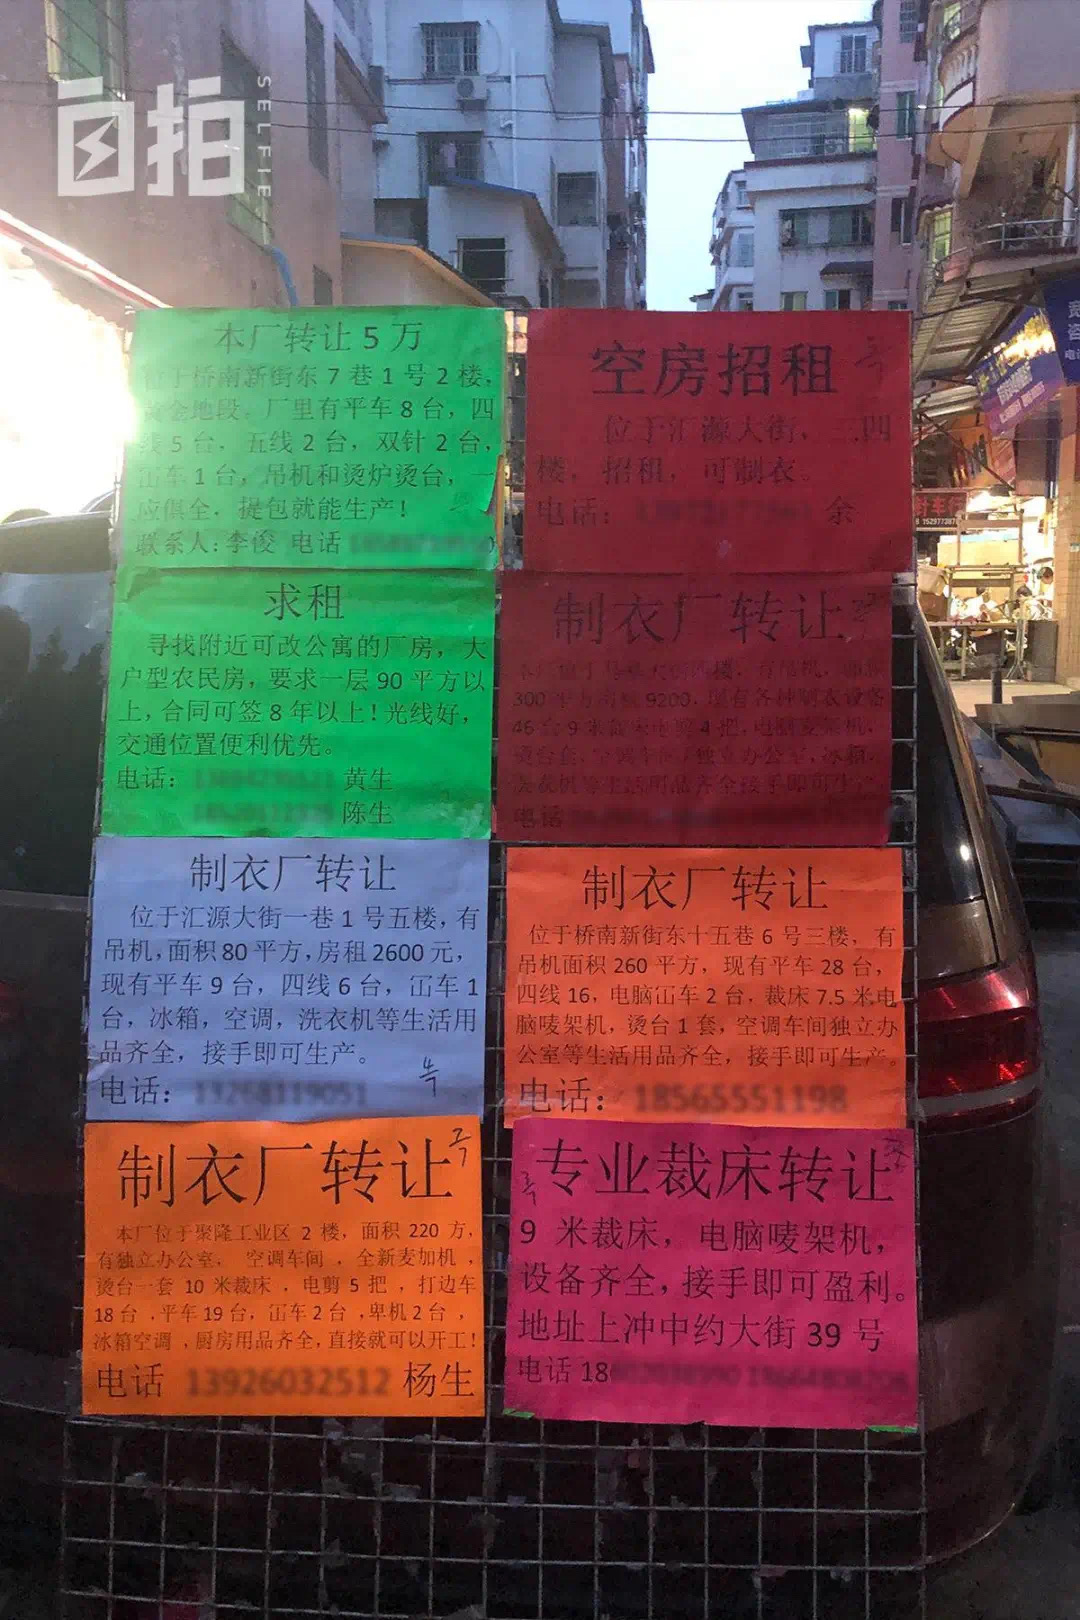 自拍
SELFIE
本厂转让5万
于桥南新街东7巷1号2楼，
金地段。厂里有平车8台，四
线5台，五线2台，双针2台，
冚车1台，吊机和烫炉烫台，一
应俱全，提包就能生产！
联系人：李俊 电话
求租
寻找附近可改公寓的厂房，大
户型农民房，要求一层90平方以
上，合同可签8年以上！光线好，
交通位置便利优先。
电话： 黄生
陈生
制衣厂转让
位于汇源大街一巷1号五楼，有
吊机，面积80平方，房租2600元，
现有平车9台，四线6台，冚车1
台，冰箱，空调，洗衣机等生活用
品齐全，接手即可生产。
电话：
制衣厂转让
本厂位于聚隆工业区 2 楼，面积 220 方，
有独立办公室， 空调车间 ，全新麦加机 ，
烫台一套 10 米裁床 ，电剪 5 把 ，打边车
18台 ，平车19台，冚车2台 ，卑机2台 ，
冰箱空调 ，厨房用品齐全，直接就可以开工！
电话 杨生
空房招租
位于汇源大街，三四
楼，招租，可制衣。
电话： 余
制衣厂转让
300平方 9200，现有各种制衣设备
46台9米 4把，电脑唛架机，
独立办公室，冰箱，
洗衣机等生活用品齐全接手即可生产
电话
制衣厂转让
位于桥南新街东十五巷6号三楼，有
吊机面积260平方，现有平车28台，
四线16，电脑冚车2台，裁床7.5米电
脑唛架机，烫台1套，空调车间独立办
公室等生活用品齐全，接手即可生产。
电话：
专业裁床转让
9 米裁床，电脑唛架机，
设备齐全，接手即可盈利。
地址上冲中约大街39号
电话18